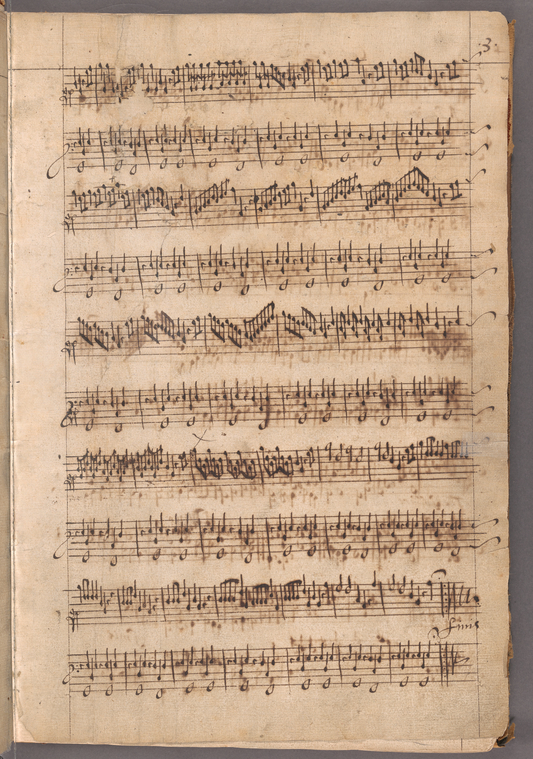 3
finis